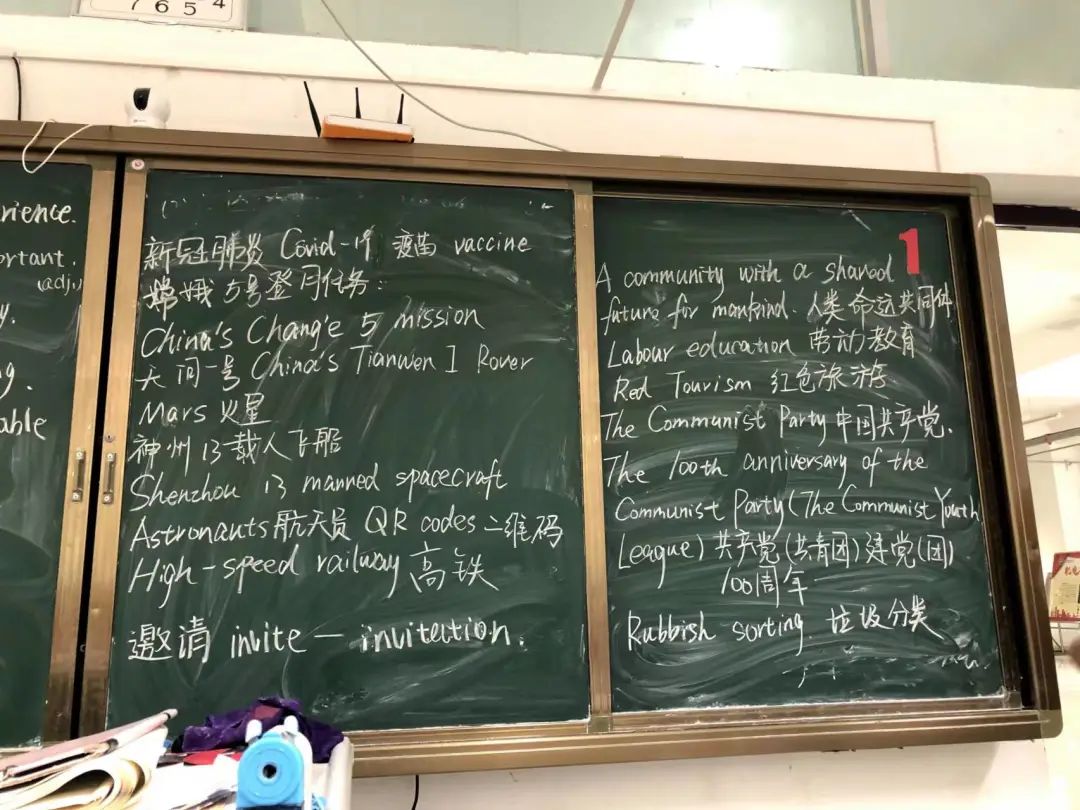 7 6 5 4
rience.
ortant.
(adj.)
y.
g.
able
新冠肺炎 Covid-19 疫苗 vaccine
嫦娥5号登月任务:
China's Chang'e 5 mission
天问一号 China's Tianwen I Rover
Mars 火星
神州13载人飞船
Shenzhou 13 manned spacecraft
Astronauts航天员 QR codes 二维码
High-speed railway 高铁
邀请 invite — invitection.
1
A community with a shared
future for mankind. 人类命运共同体
Labour education 劳动教育
Red Tourism 红色旅游
The Communist Party 中国共产党.
The 100th anniversary of the
Communist Party (The Communist Youth
League) 共产党(共青团)建党(团)
100周年
Rubbish sorting. 垃圾分类